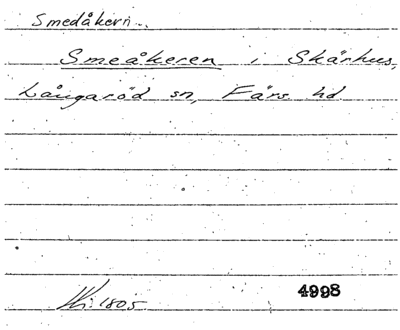 Smedåkern
Smeåkeren i Skårhus,
Långaröd sn, Färs hd
1805
4998